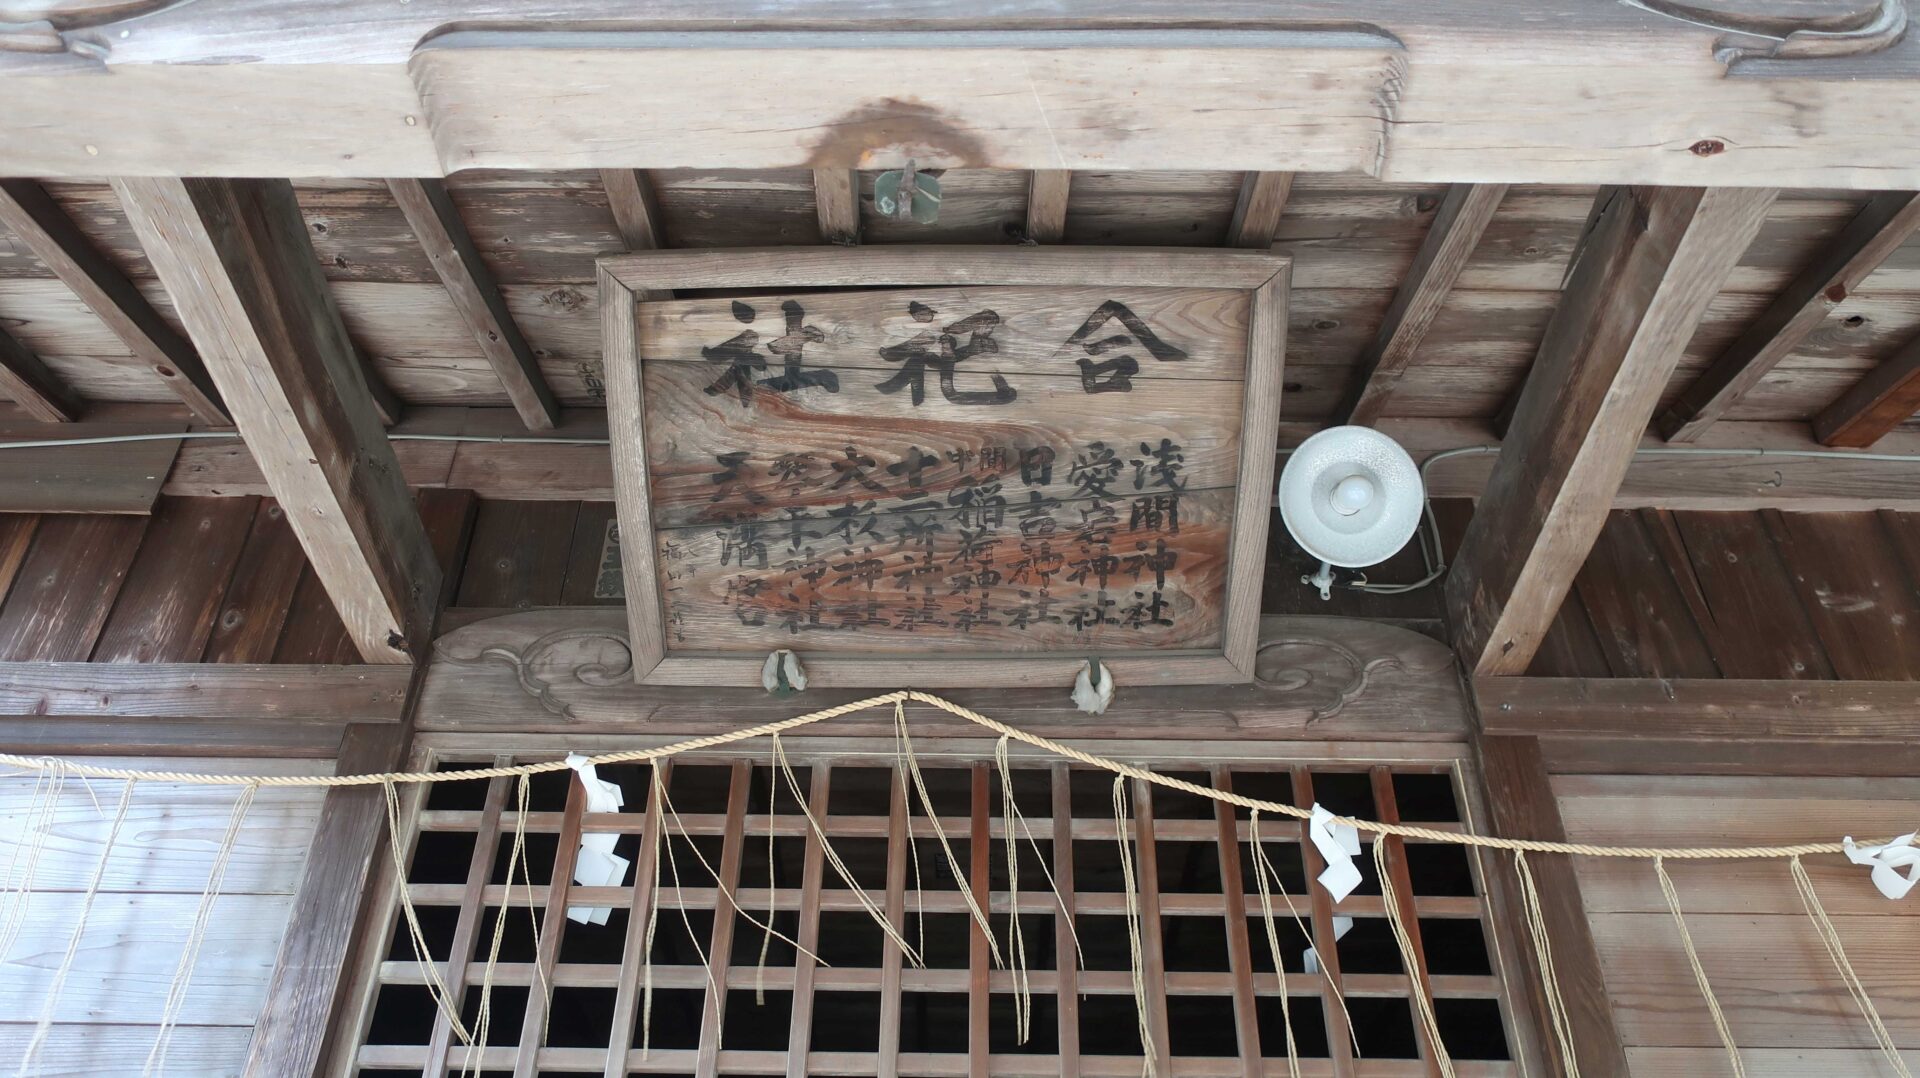 合祀社
浅間神社
愛宕神社
日吉神社
間中稲荷神社
十二所神社
大杉神社
琴平神社
天満宮